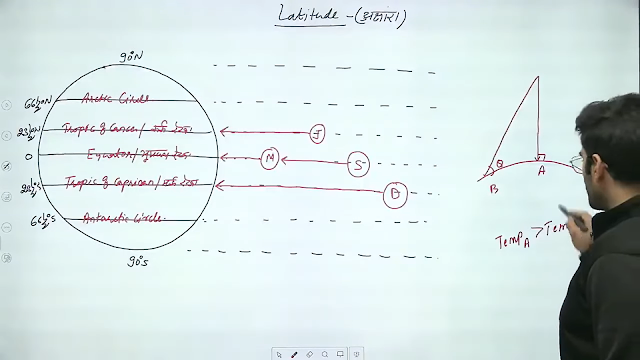 Latitude - (अक्षांश)
90°N
66½°N Arctic Circle
23½°N Tropic of Cancer / कर्क रेखा J
0 Equator / भूमध्य रेखा M S
23½°S Tropic of Capricorn / मकर रेखा D
66½°S Antarctic Circle
90°S
θ
B
A
Temp A > Tem